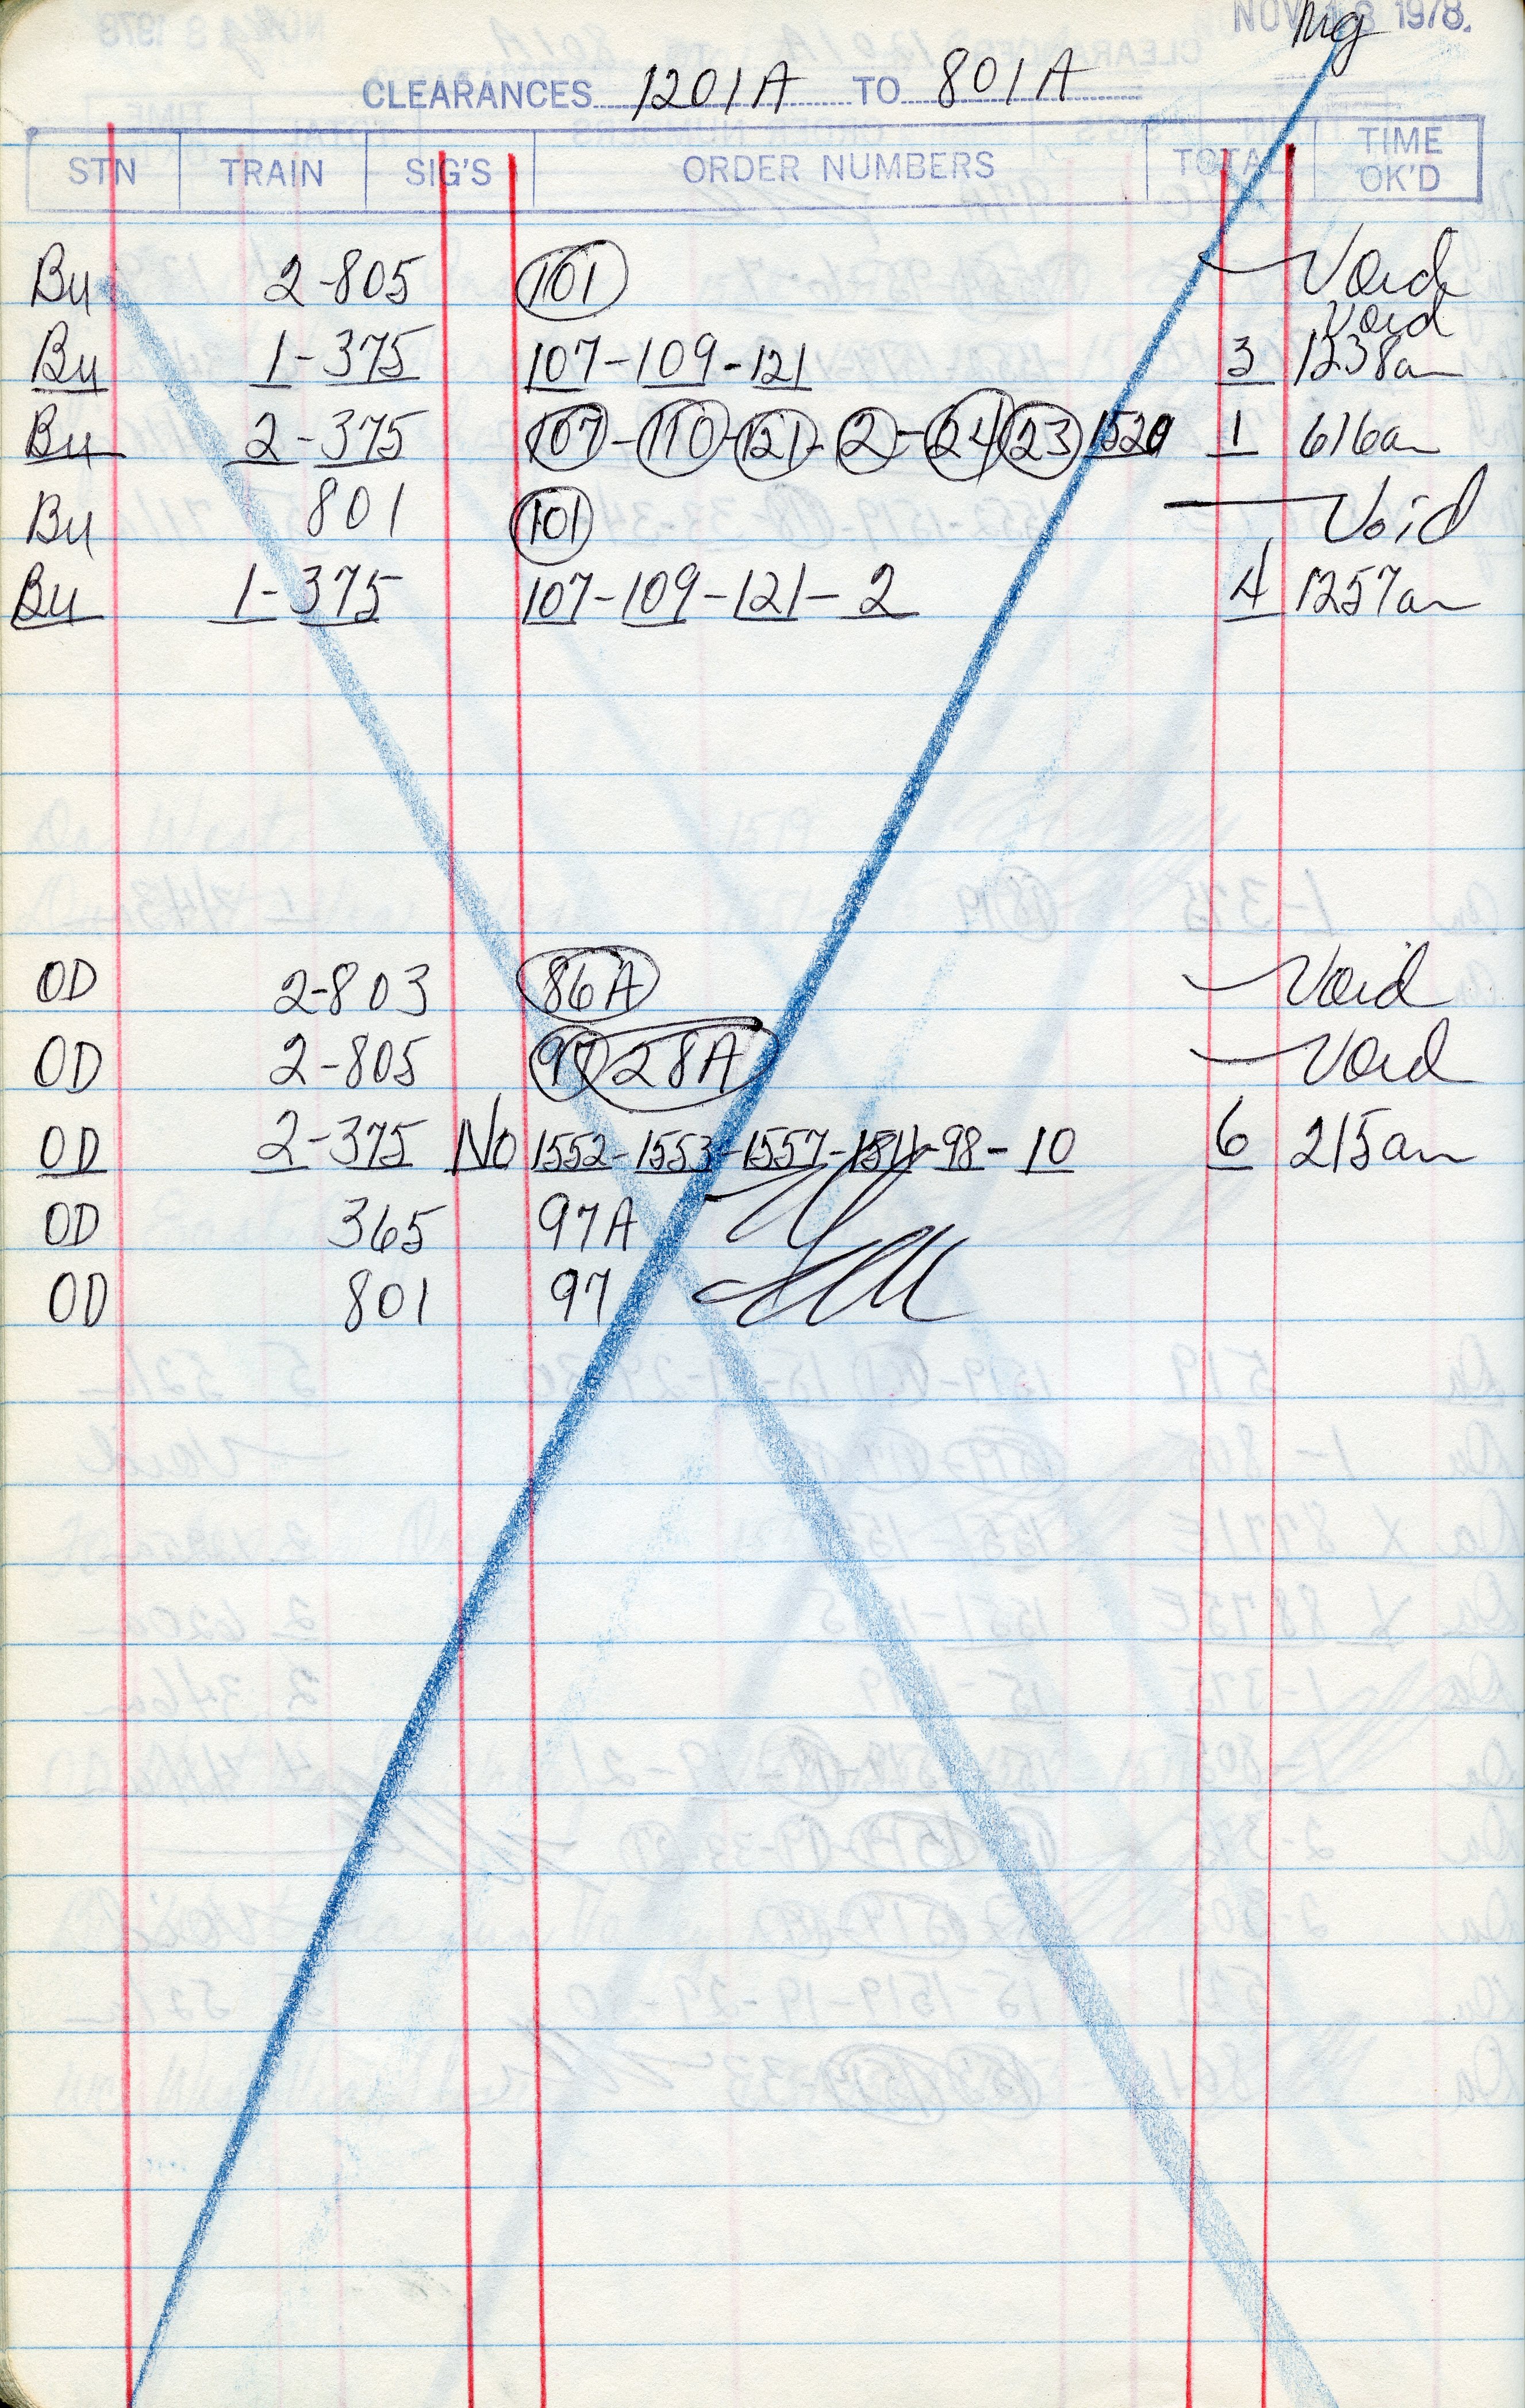 NOV 18 1978.
mg
CLEARANCES 1201A TO 801A
STN TRAIN SIG'S ORDER NUMBERS TOTAL TIME OK'D
Bu 2-805 101 Void
Void
Bu 1-375 107-109-121 3 1238am
Bu 2-375 107-110-121-2-24 23 1520 1 616am
Bu 801 101 Void
Bu 1-375 107-109-121-2 4 1257am
OD 2-803 86A Void
OD 2-805 97 28A Void
OD 2-375 No 1552-1553-1557-1511-98-10 6 215am
OD 365 97A
OD 801 97